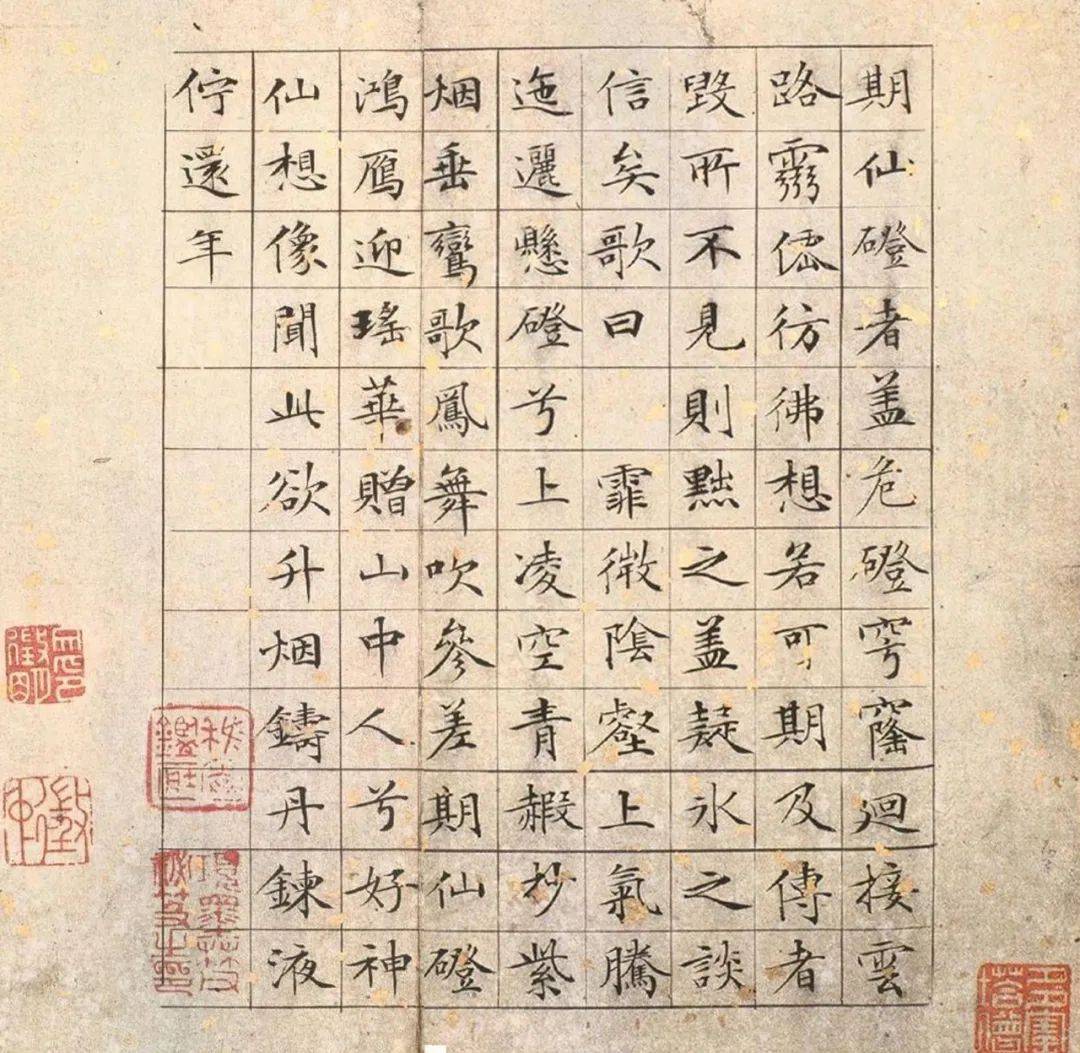 期仙磴者盖危磴穹窿迴接雲
路霛僊彷彿想若可期及傳者
毀所不見則黜之盖疑氷之談
信矣歌曰 霏微陰壑上氣騰
迤邐懸磴兮上凌空青赮杪紫
烟垂鸞歌鳳舞吹參差期仙磴
鴻鴈迎瑤華贈山中人兮好神
仙想像聞此欲升烟鑄丹鍊液
佇還年